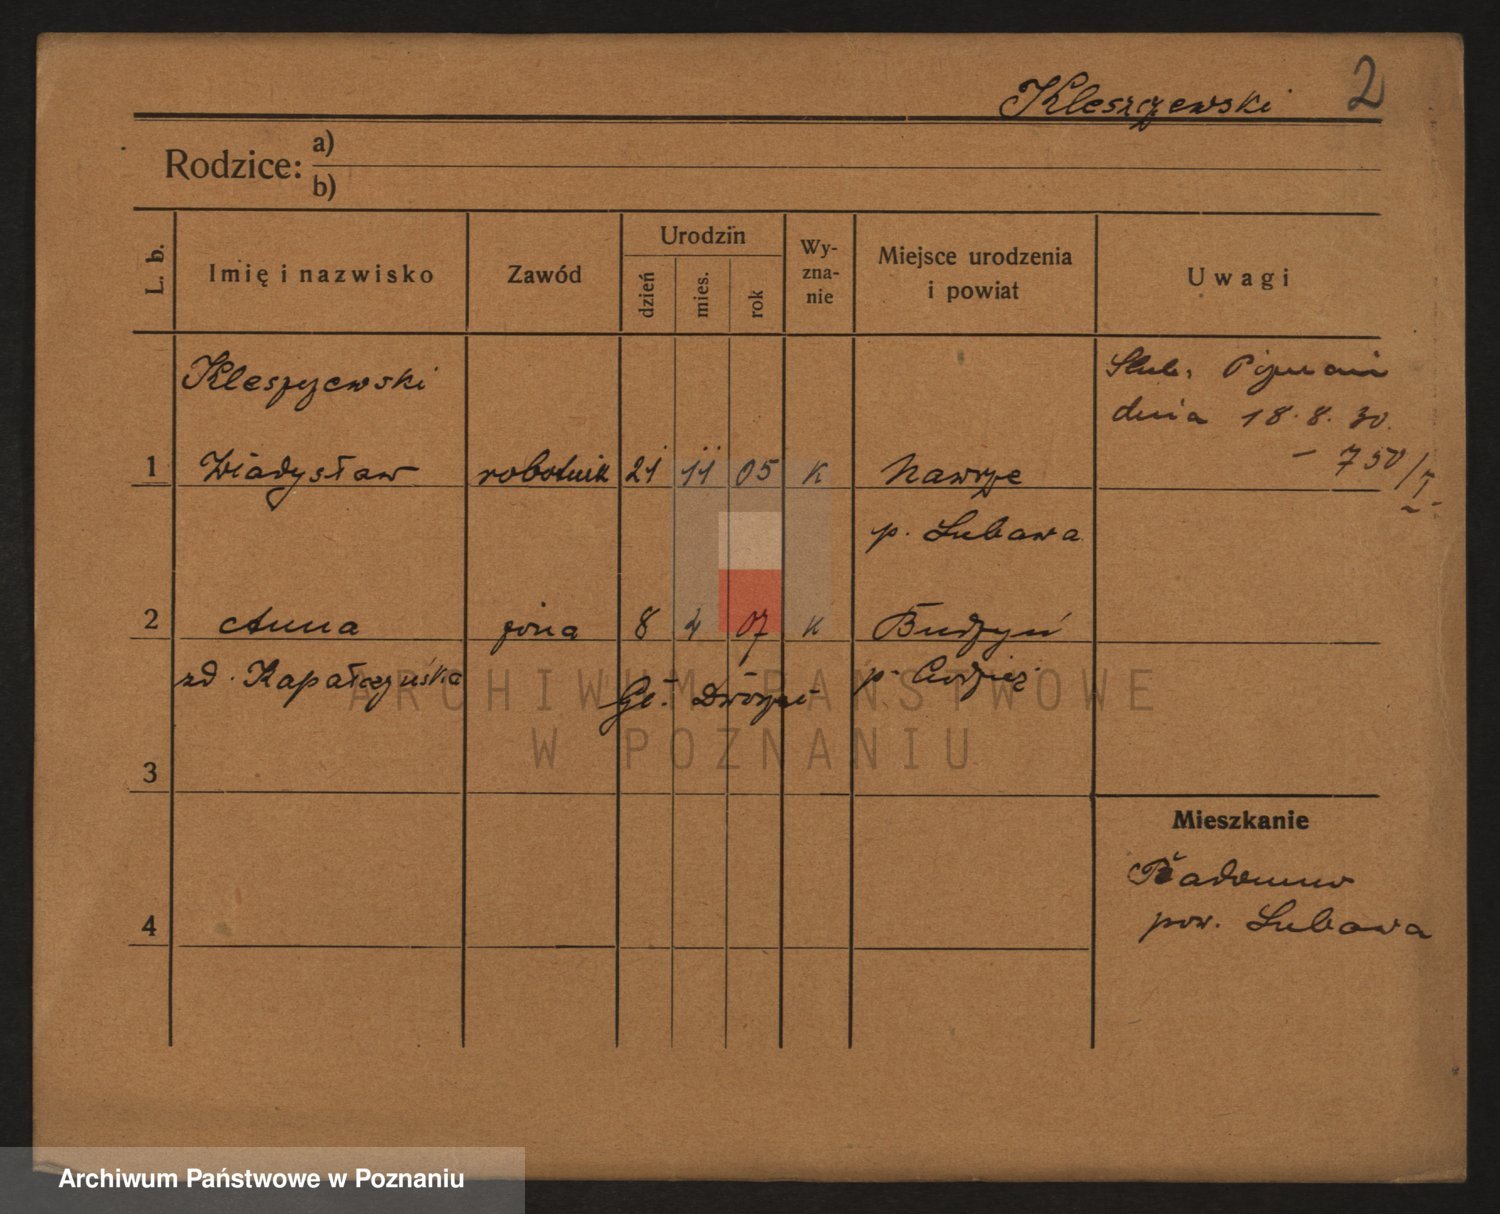 Kleszczewski 2
Rodzice: a)
b)
L. b.
Imię i nazwisko
Zawód
Urodzin
dzień
mies.
rok
Wy-
zna-
nie
Miejsce urodzenia
i powiat
Uwagi
Kleszczewski
Ślub. Poznań
dnia 18.8.30.
- 750/I
1 Władysław robotnik 21 11 05 K Nawrze
p. Lubawa
2 Anna żona 8 4 07 K Budzyń
zd. Kapałczyńska Gł. Dworzec p. Chodzież
ARCHIWUM PAŃSTWOWE
W POZNANIU
3
Mieszkanie
Radomno
pow. Lubawa
4
Archiwum Państwowe w Poznaniu